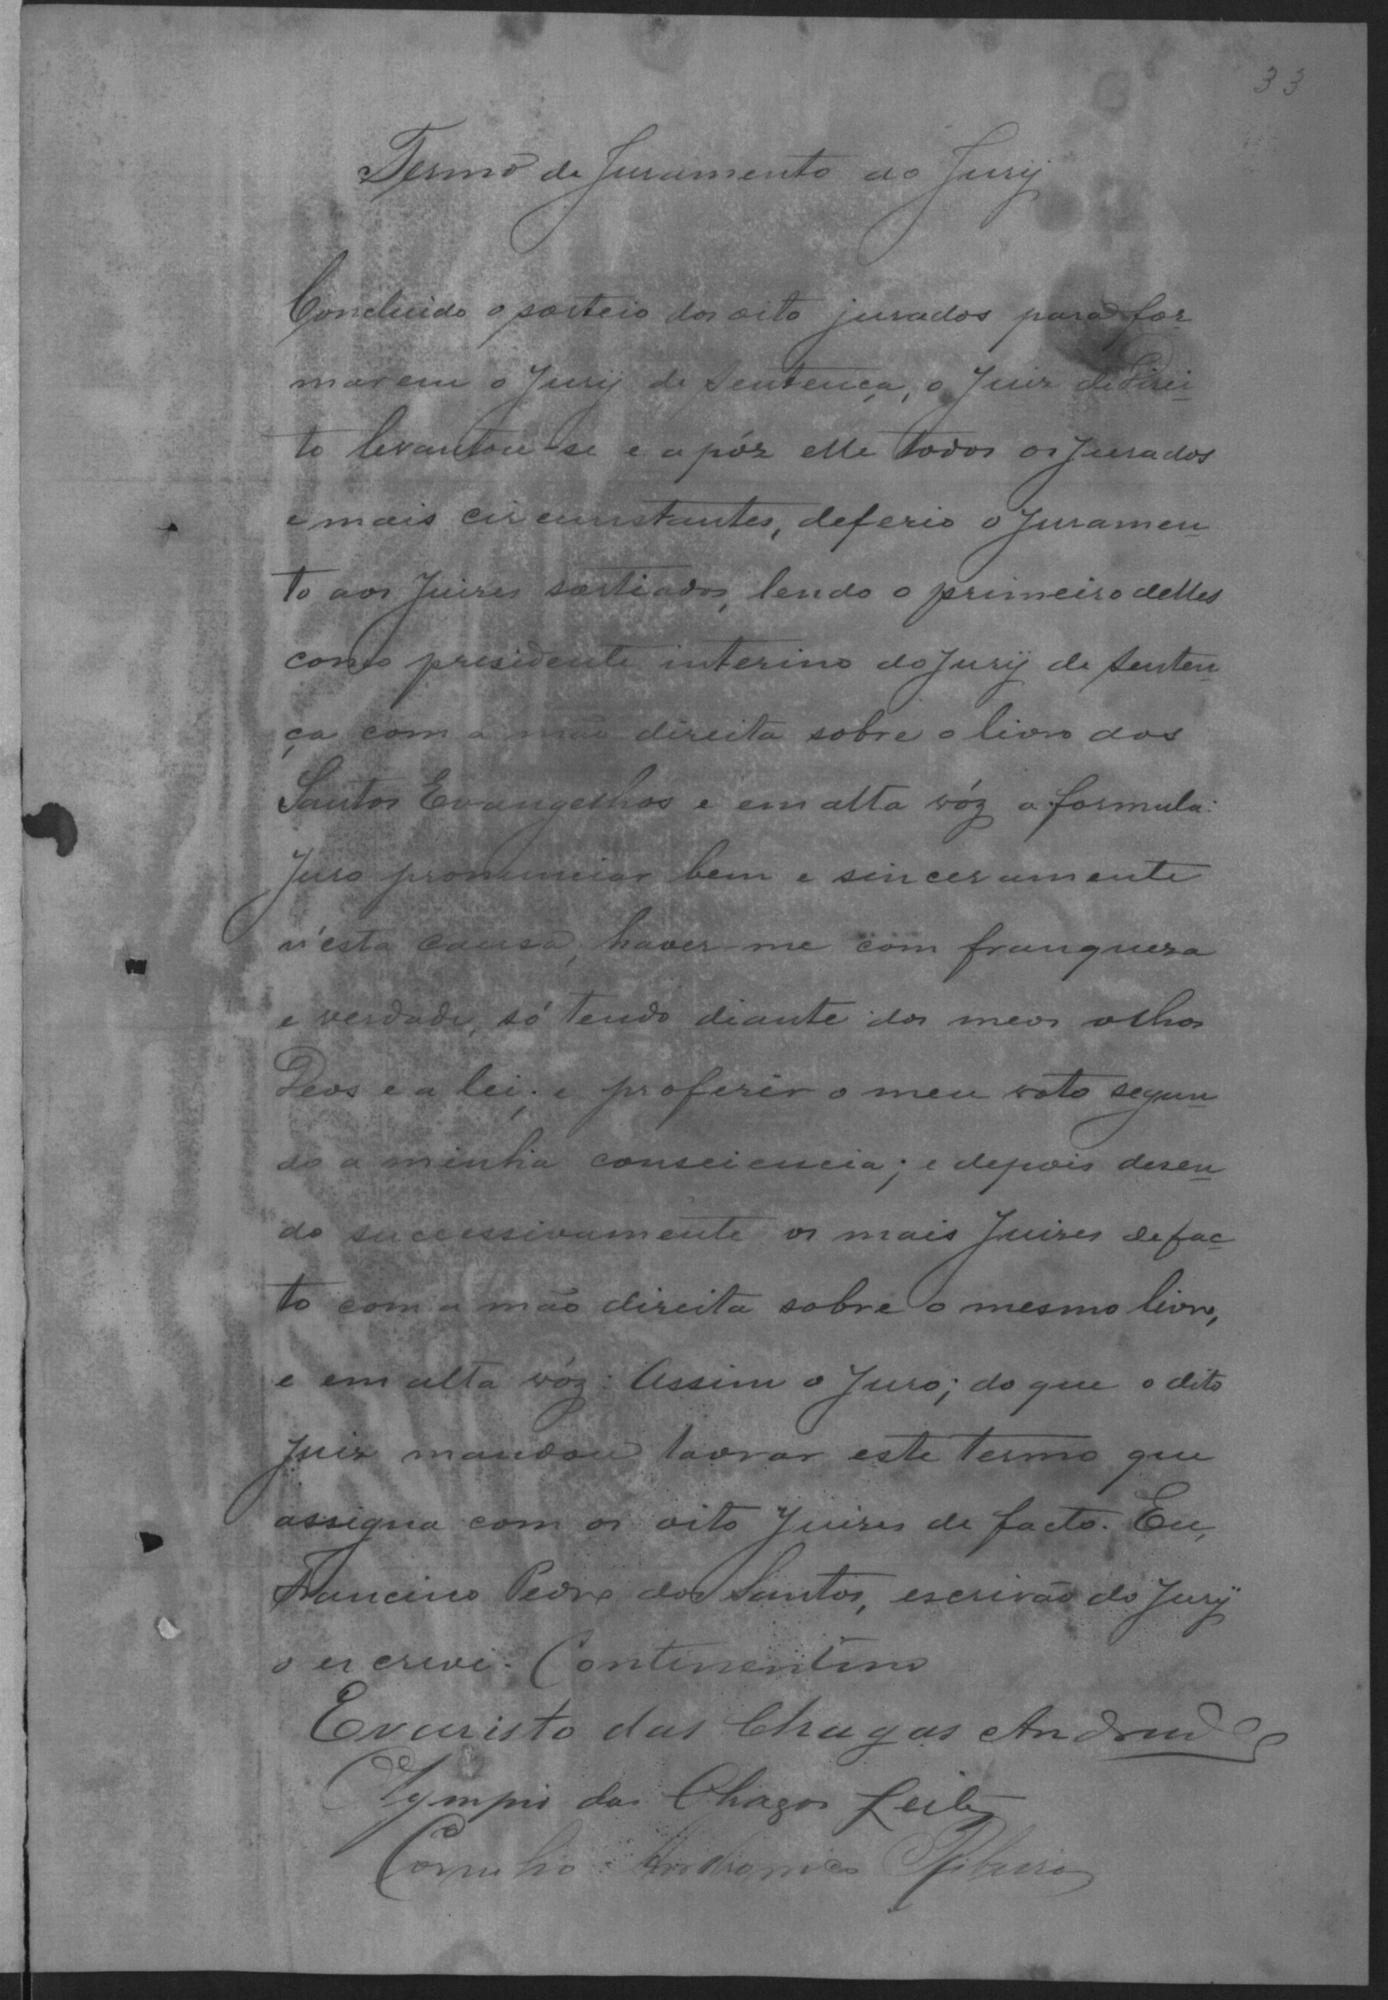 33
Termo de Juramento ao Jury
Concluido o sorteio dos oito jurados para for
marem o Jury de Sentença, o Juiz de Direi
to levantou-se e apóz elle todos os Jurados
e mais circumstantes, deferio o Juramen
to aos Juizes sortiados, lendo o primeiro delles
como presidente interino do Jury de Senten
ça com a mão direita sobre o livro dos
Santos Evangelhos e em alta vóz a formula:
Juro pronunciar bem e sinceramente
n'esta causa, haver-me com franqueza
e verdade, só tendo diante dos meos olhos
Deos e a lei; e proferir o meu voto segun
do a minha consciencia; e depois dizen
do successivamente os mais Juizes de fac
to com a mão direita sobre o mesmo livro,
e em alta vóz: Assim o Juro; do que o dito
Juiz mandou lavrar este termo que
assigna com os oito Juizes de facto. Eu,
Francino Pedro dos Santos, escrivão do Jury
o escrevi. Continentino
Evaristo das Chagas Andrade
Olympio das Chagas Leite
Cornelio Andronico Ribeiro